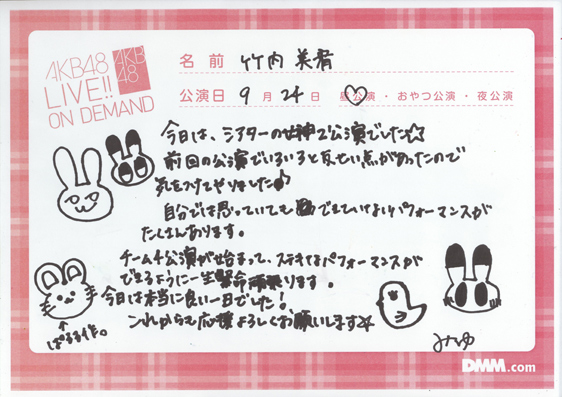 AKB48
LIVE!!
ON DEMAND
AKB
48
名前 竹内 美宥
公演日 9月24日 昼公演・おやつ公演・夜公演
今日は、シアターの女神公演でした☆
前回の公演でいろいろと反省点があったので
気をつけてやりました♪
自分では思っていてもできていないパフォーマンスが
たくさんあります。
チーム4公演が始まって、ステキなパフォーマンスが
できるように一生懸命頑張ります。
今日は本当に良い一日でした!
これからも応援よろしくお願いします☆
↑
ぱるる作。
みゆ
DMM.com